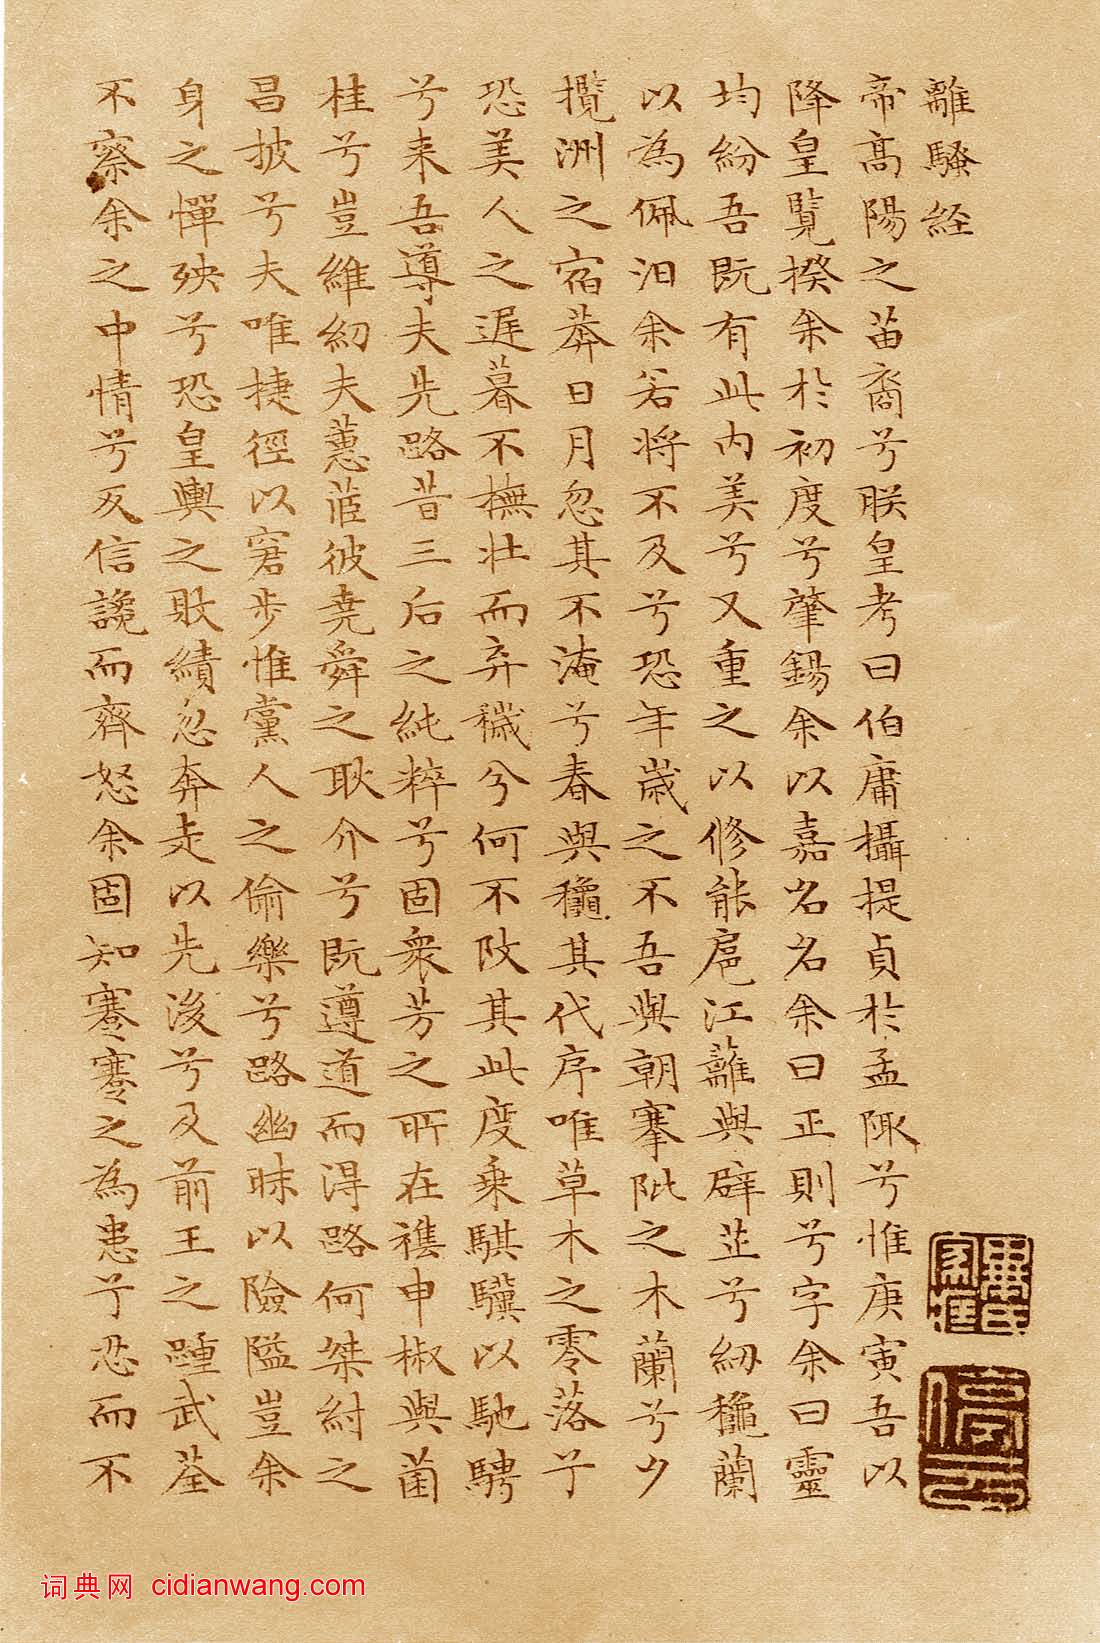 離騷経
帝高陽之苗裔兮朕皇考曰伯庸攝提貞於孟陬兮惟庚寅吾以
降皇覧揆余於初度兮肇錫余以嘉名名余曰正則兮字余曰靈
均紛吾既有此内美兮又重之以修能扈江蘺與辟芷兮紉龝蘭
以為佩汨余若将不及兮恐年歳之不吾與朝搴阰之木蘭兮夕
攬洲之宿莽日月忽其不淹兮春與龝其代序唯草木之零落兮
恐美人之遅暮不撫壮而弃穢兮何不改其此度乗騏驥以馳騁
兮来吾導夫先路昔三后之純粹兮固衆芳之所在襍申椒與菌
桂兮豈維紉夫蕙茝彼堯舜之耿介兮既遵道而得路何桀紂之
昌披兮夫唯捷徑以窘步惟黨人之偷樂兮路幽昧以險隘豈余
身之憚殃兮恐皇輿之敗績忽奔走以先後兮及前王之踵武荃
不察余之中情兮反信讒而齊怒余固知謇謇之為患兮恐而不
停云
词典网 cidianwang.com